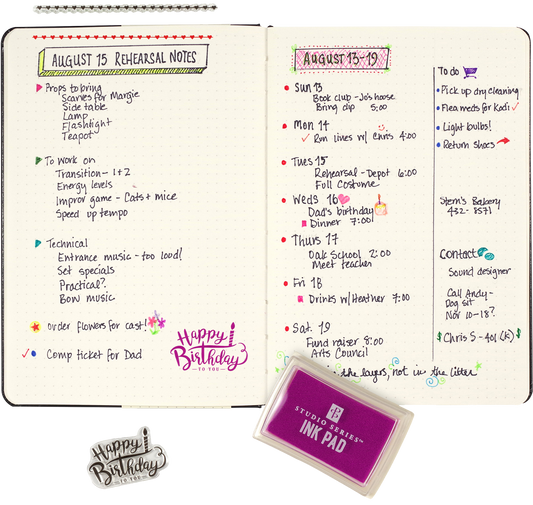 AUGUST 15 REHEARSAL NOTES
Props to bring
Scarves for Margie
Side table
Lamp
Flashlight
Teapot
To work on
Transition - 1+2
Energy levels
Improv game - Cats + mice
Speed up tempo
Technical
Entrance music - too loud!
Set specials
Practical?
Bow music
Order flowers for cast!
Comp ticket for Dad
Happy
Birthday
TO YOU
AUGUST 13-19
Sun 13
Book club - Jo's house
Bring dip 5:00
Mon 14
Run lines w/ Chris 4:00
Tues 15
Rehearsal - Depot 6:00
Full Costume
Weds 16
Dad's birthday
Dinner 7:00
Thurs 17
Oak School 2:00
Meet teacher
Fri 18
Drinks w/ Heather 7:00
Sat. 19
Fund raiser 8:00
Arts Council
To do
Pick up dry cleaning
Flea meds for Kodi
Light bulbs!
Return shoes
Stern's Bakery
432-8571
Contact
Sound designer
Call Andy -
Dog sit
Nov 10-18?
$ Chris S - 401(k) $
the layers, not in the litter
Happy
Birthday
TO YOU
STUDIO SERIES™
INK PAD